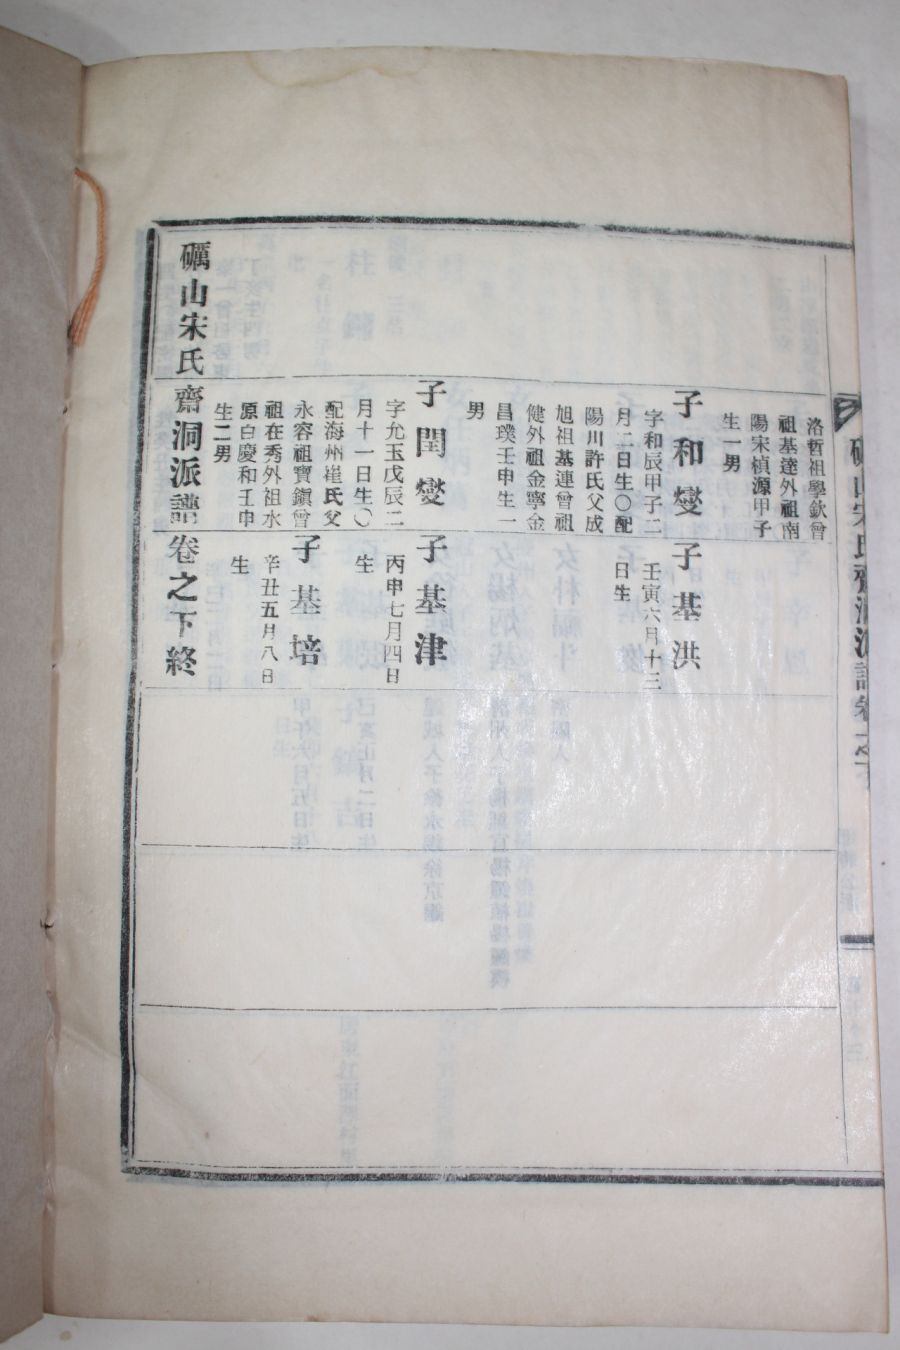 礪山宋氏齋洞派譜卷之下
洛哲祖學欽曾
祖基達外祖南
陽宋楨源甲子
生一男
子和燮
字和辰甲子二
月二日生〇配
陽川許氏父成
旭祖基連曾祖
健外祖金寧金
昌璞壬申生一
男
子基洪
壬寅六月十三
日生
子閏燮
字允玉戊辰二
月十一日生〇
配海州崔氏父
永容祖寶鎭曾
祖在秀外祖水
原白慶和壬申
生二男
子基津
丙申七月四日
生
子基培
辛丑五月八日
生
礪山宋氏齋洞派譜卷之下終